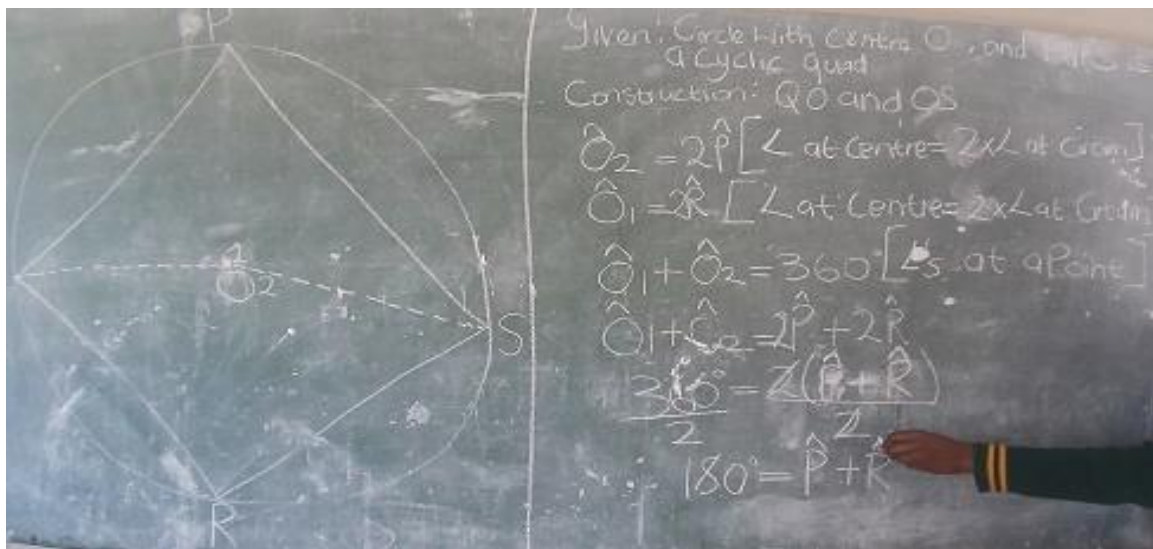 P
1
O2
S
R
Given: Circle with centre O, and
a cyclic quad
Construction: QO and OS
Ô₂ = 2P̂ [∠ at centre = 2x∠ at Circum]
Ô₁ = 2R̂ [∠ at centre = 2x∠ at Circum
Ô₁ + Ô₂ = 360° [∠s at a Point]
Ô₁ + Ô₂ = 2P̂ + 2R̂
360°/2 = 2(P̂ + R̂)/2
180° = P̂ + R̂